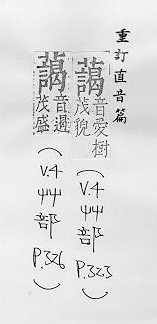 重訂直音篇
藹音愛樹茂貌（V.4艸部P.323）
藹音遏茂盛（V.4艸部P.326）